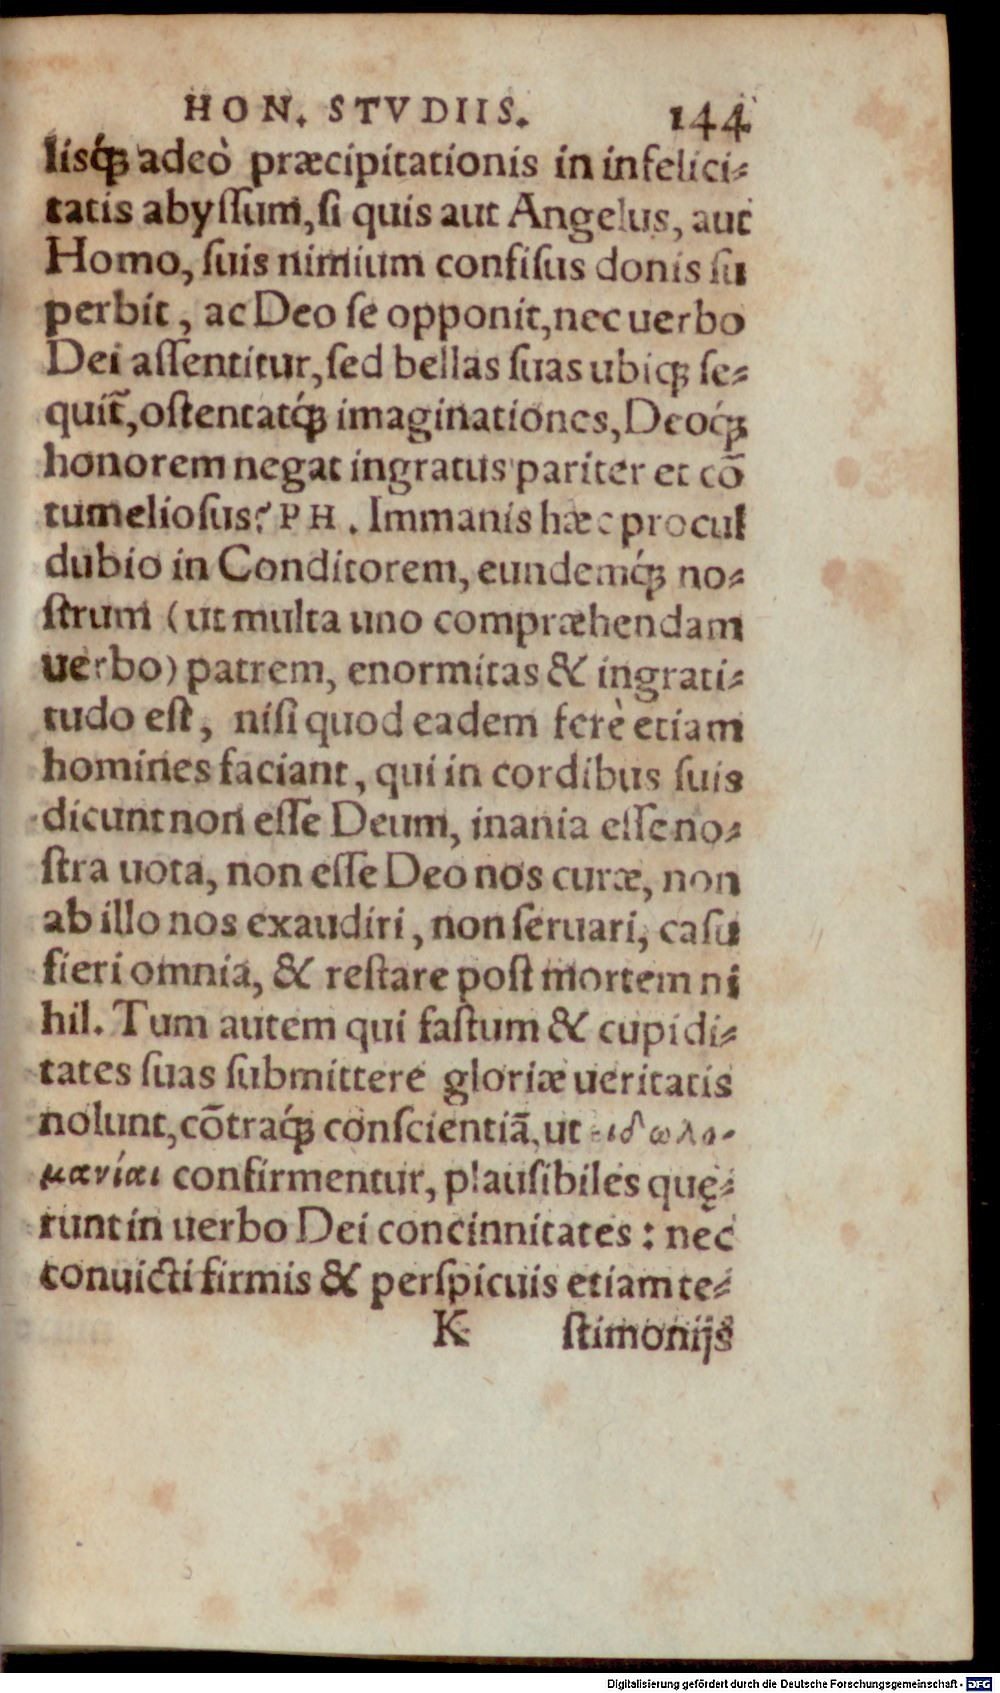 HON. STVDIIS. 144
lisq́ꝫ adeò præcipitationis in infelici-
tatis abyſſum, ſi quis aut Angelus, aut
Homo, ſuis nimium confiſus donis ſu
perbit, ac Deo ſe opponit, nec uerbo
Dei aſſentitur, ſed bellas ſuas ubiqꝫ ſe-
quit̃, oſtentatq́ꝫ imaginationes, Deoq́ꝫ
honorem negat ingratus pariter et cõ
tumelioſus? PH. Immanis hæc procul
dubio in Conditorem, eundemq́ꝫ no-
ſtrum (ut multa uno compræhendam
uerbo) patrem, enormitas & ingrati-
tudo eſt, niſi quod eadem ferè etiam
homines faciant, qui in cordibus ſuis
dicunt non eſſe Deum, inania eſſe no-
ſtra uota, non eſſe Deo nos curæ, non
ab illo nos exaudiri, non ſeruari, caſu
fieri omnia, & reſtare poſt mortem ni
hil. Tum autem qui faſtum & cupidi-
tates ſuas ſubmittere gloriæ ueritatis
nolunt, cõtraq́ꝫ conſcientiã, ut ειδωλο-
μανίαι confirmentur, plauſibiles quę-
runt in uerbo Dei concinnitates: nec
conuicti firmis & perſpicuis etiam te-
K ſtimonijs
Digitalisierung gefördert durch die Deutsche Forschungsgemeinschaft - DFG